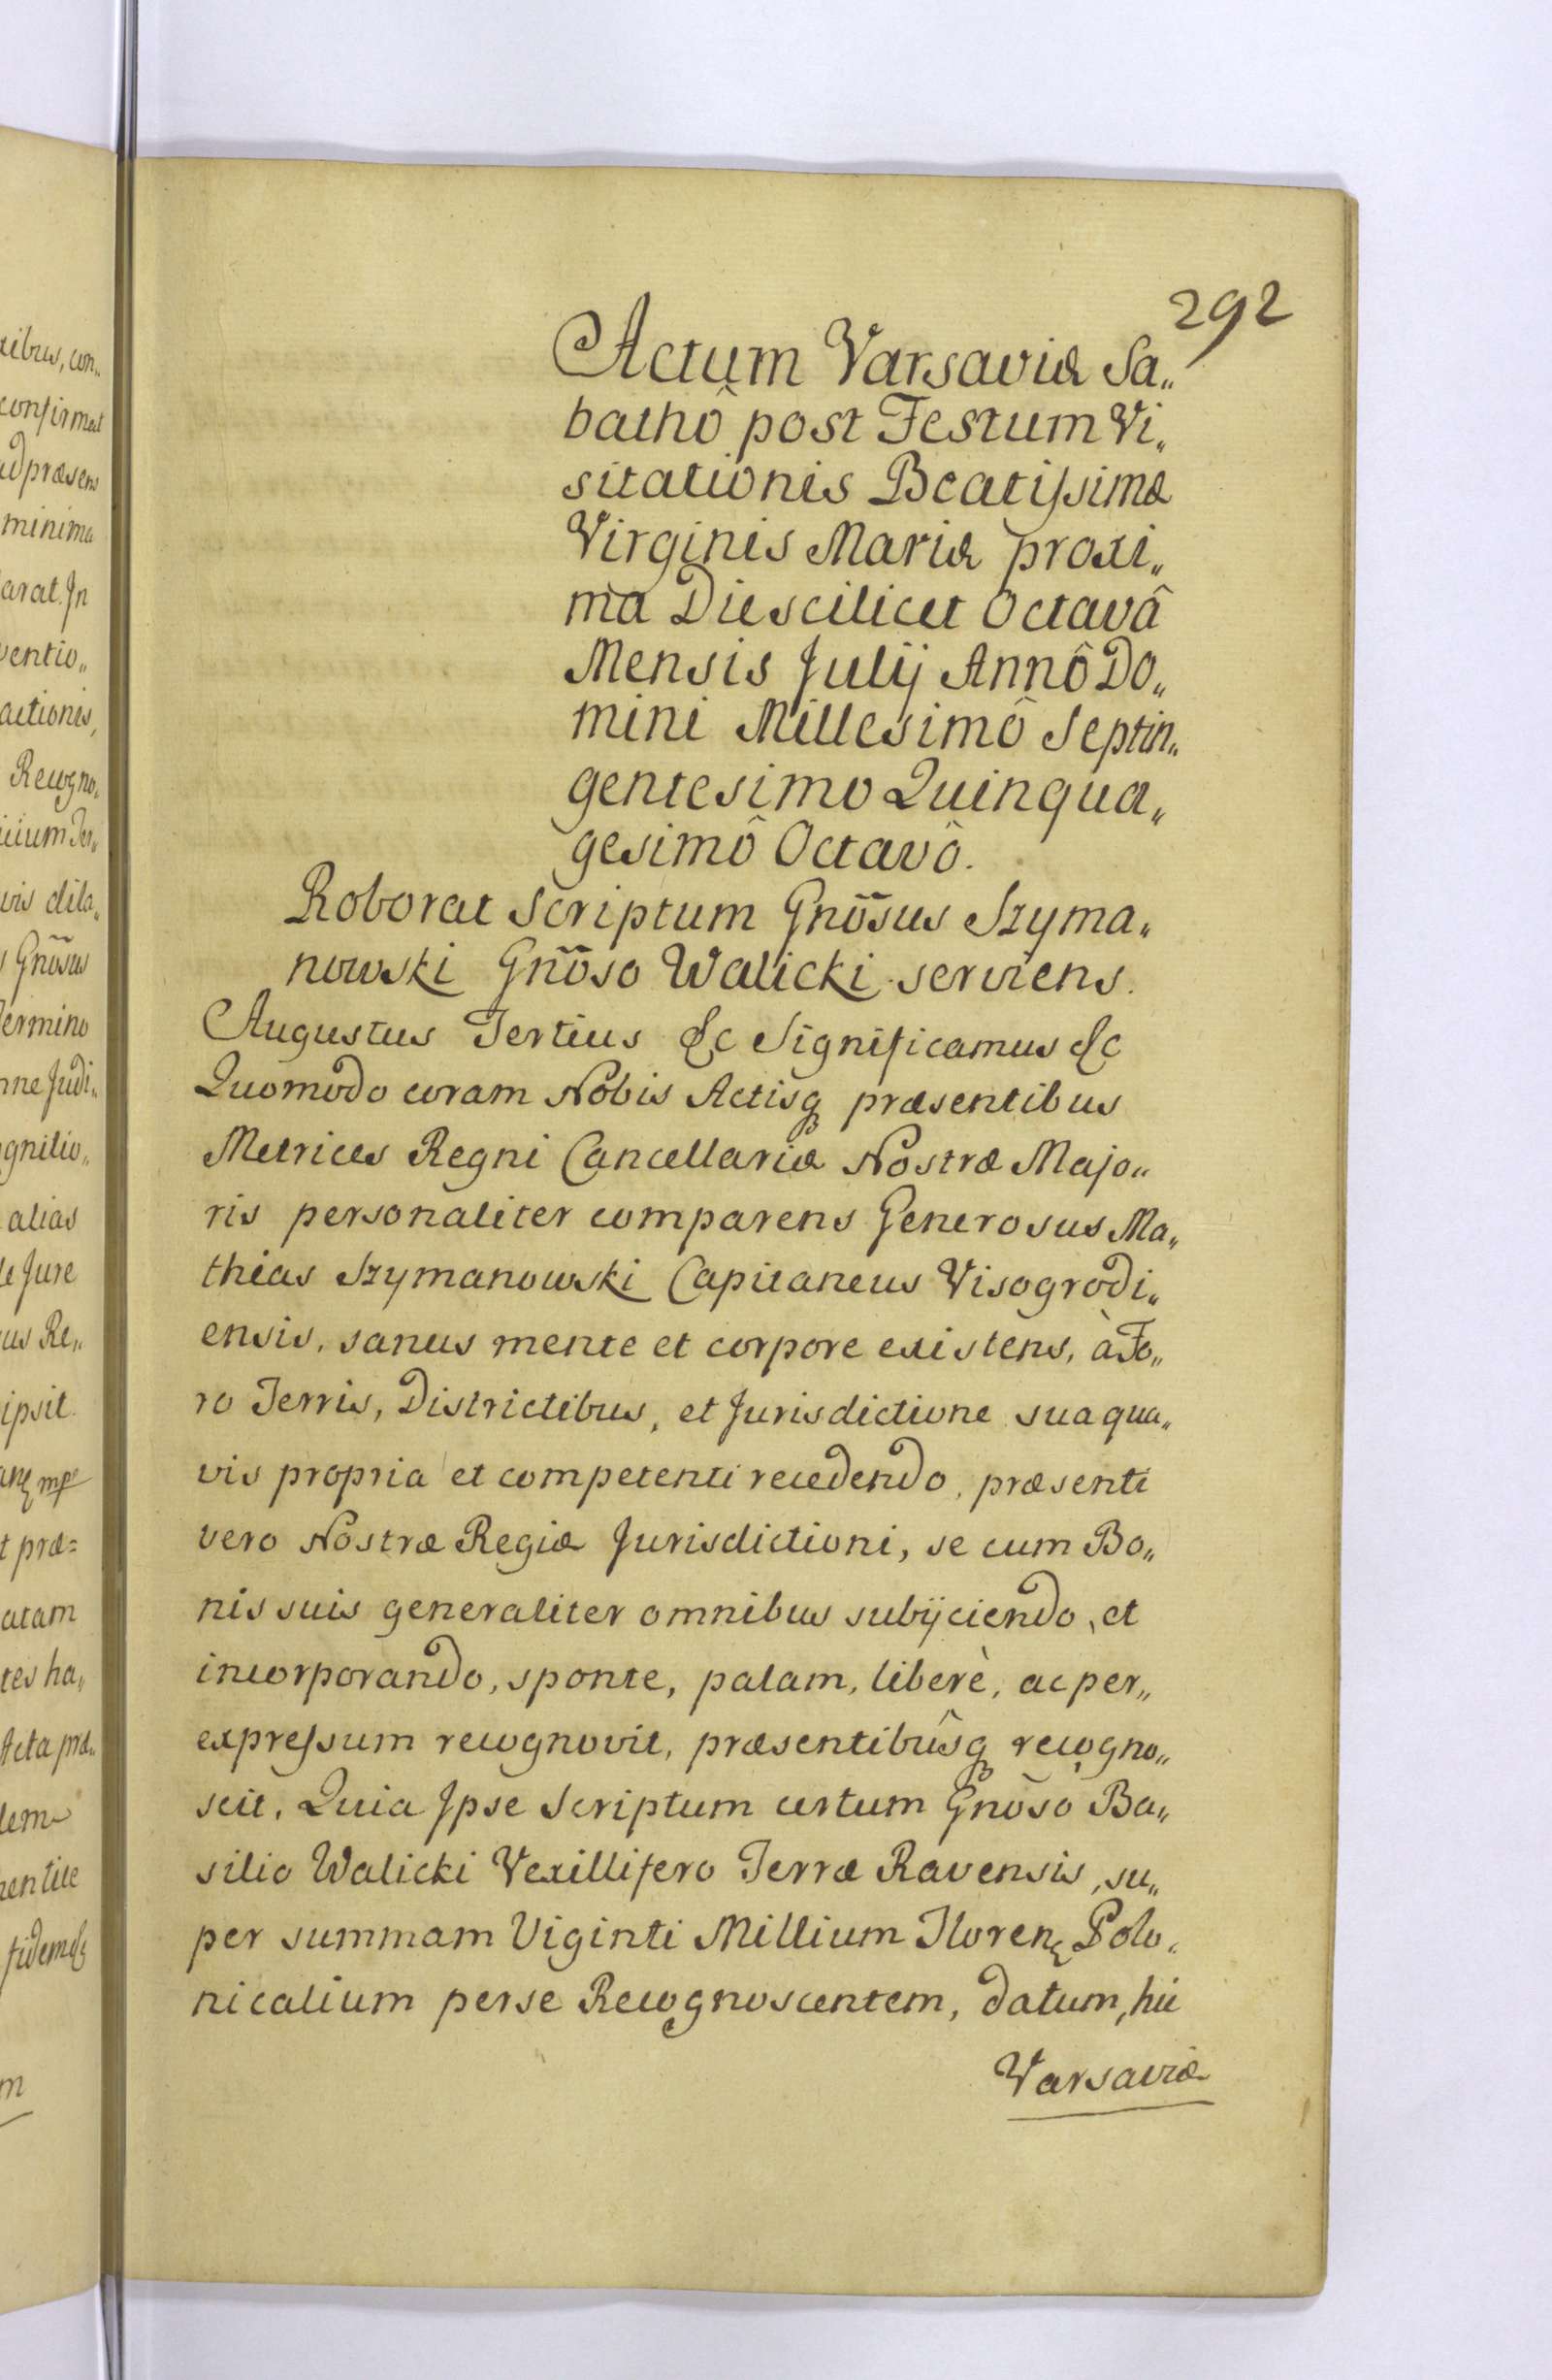 292
Actum Varsaviæ Sa„
bathô post Festum Vi„
sitationis Beatissimæ
Virginis Mariæ proxi„
ma Die scilicet Octavâ
Mensis Julij Annô Do„
mini Millesimô Septin„
gentesimo Quinqua„
gesimô Octavô.
Roborat Scriptum Gnõsus Szyma„
nowski Gnõso Walicki serviens.
Augustus Tertius &c Significamus &c
Quomodo coram Nobis Actisq præsentibus
Metrices Regni Cancellariæ Nostræ Majo„
ris personaliter comparens Generosus Ma„
thias Szymanowski Capitaneus Visogrodi„
ensis, sanus mente et corpore existens, à Fo„
ro Terris, Districtibus, et Jurisdictione sua qua„
vis propria et competenti recedendo, præsenti
vero Nostræ Regiæ Jurisdictioni, se cum Bo„
nis suis generaliter omnibus subijciendo, et
incorporando, sponte, palam, liberè, ac per„
expressum recognovit, præsentibûsq recogno„
scit, Quia Ipse Scriptum certum Gnõso Ba„
silio Walicki Vexillifero Terræ Ravensis, su„
per summam Viginti Millium Floren Polo„
nicalium per se Recognoscentem, datum, hic
Varsaviæ
xibus, con„
confirmat
ad præsens
minima
arat. In
ventio„
actionis,
Recogno„
icium Ter„
vis dila„
Gnõsus
Termino
nne Judi„
gnitio„
alias
de Jure
us Re„
ipsit.
mp
t præ=
atam
tes ha„
Acta præ„
dem
hentice
fidemq
m